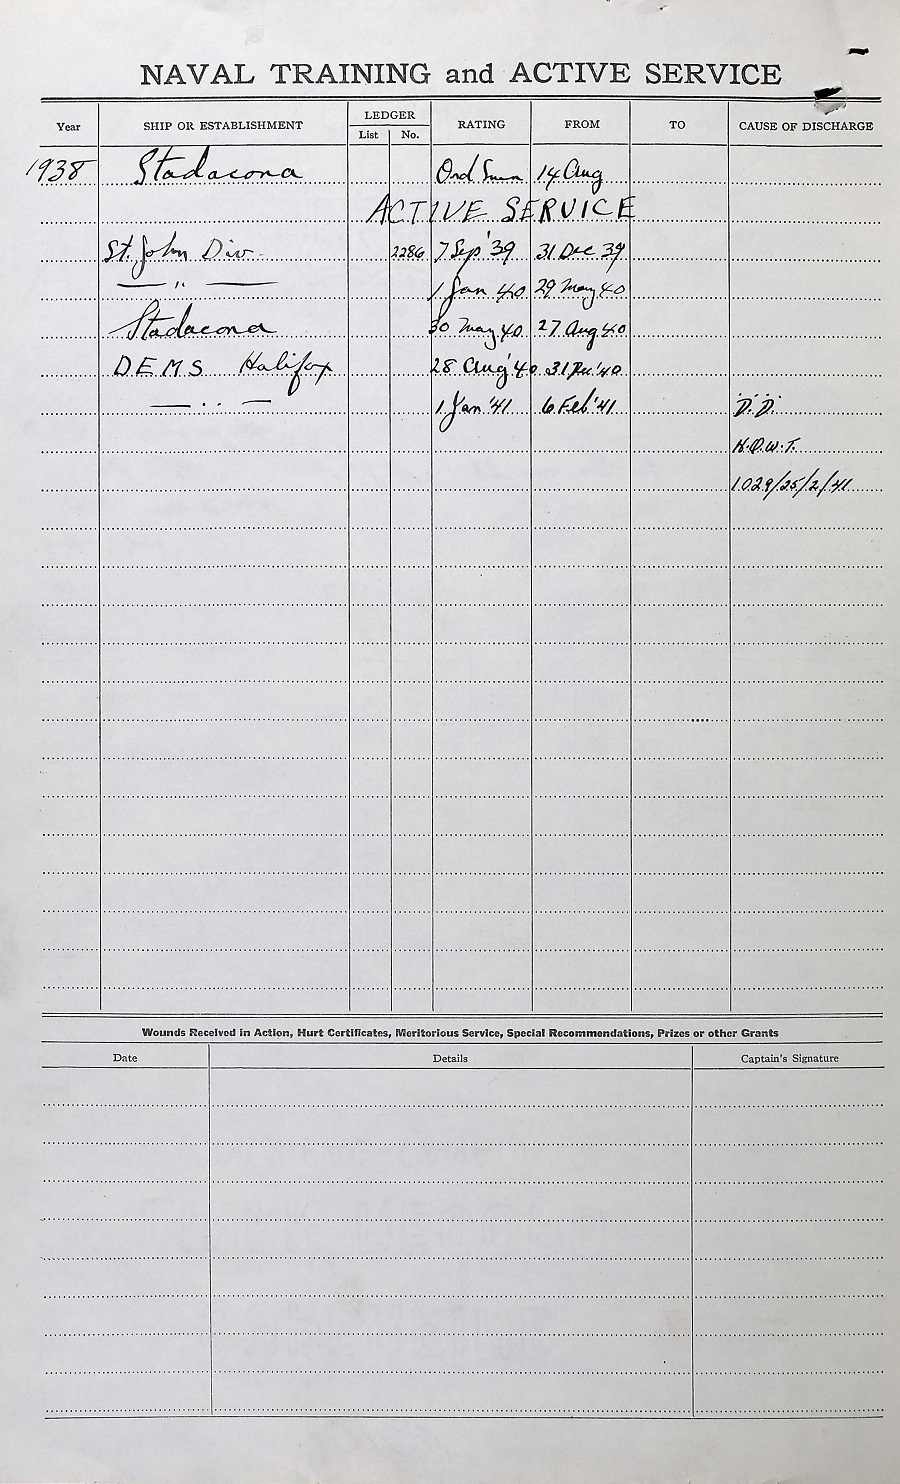 NAVAL TRAINING and ACTIVE SERVICE
Year SHIP OR ESTABLISHMENT LEDGER RATING FROM TO CAUSE OF DISCHARGE
List No.
1938 Stadacona Ord Smn 14 Aug
ACTIVE SERVICE
St. John Div. 2286 7 Sep '39 31 Dec 39
— " — 1 Jan 40 29 May 40
Stadacona 30 May 40 27 Aug 40
DEMS Halifax 28 Aug '40 31 Dec '40
— .. — 1 Jan '41 6 Feb '41 D.D.
1029/25/2/41
Wounds Received in Action, Hurt Certificates, Meritorious Service, Special Recommendations, Prizes or other Grants
Date Details Captain's Signature